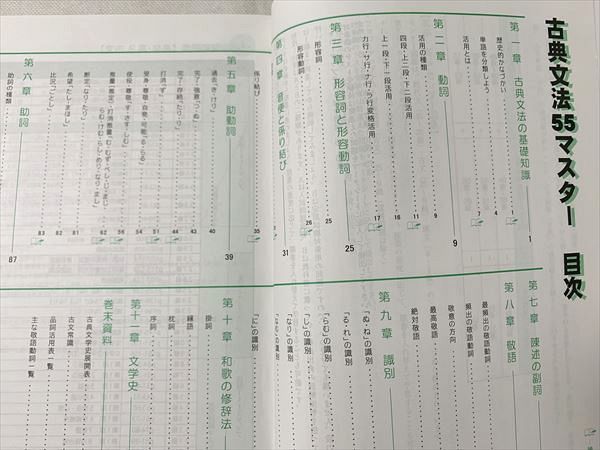 古典文法55マスター 目次
第一章 古典文法の基礎知識 1
歴史的かなづかい 1
単語を分類しよう 4
活用とは 7
第二章 動詞 9
活用の種類 9
四段・上二段・下二段活用 11
上一段・下一段活用 16
カ行・サ行・ナ行・ラ行変格活用 17
第三章 形容詞と形容動詞 25
形容詞 25
形容動詞 26
第四章 音便と係り結び 31
係り結び 35
第五章 助動詞 39
過去「き・けり」 40
完了・強意「つ・ぬ」 43
完了・存続「たり・り」 44
打消「ず」 44
受身・尊敬・自発・可能「る・らる」 51
使役・尊敬「す・さす・しむ」 54
断定「なり・たり」 81
希望「たし・まほし」 82
比況「ごとし」 83
第六章 助詞 87
助詞の種類
第七章 陳述の副詞
第八章 敬語
最頻出の敬語動詞
頻出の敬語動詞
敬意の方向
最高敬語
絶対敬語
第九章 識別
「ぬ・ね」の識別
「る・れ」の識別
「らむ」の識別
「し」の識別
「なり」の識別
「に」の識別
第十章 和歌の修辞法
掛詞
縁語
枕詞
序詞
第十一章 文学史
巻末資料
古典文学史展開表
古文常識
品詞活用表一覧
主な敬語動詞一覧